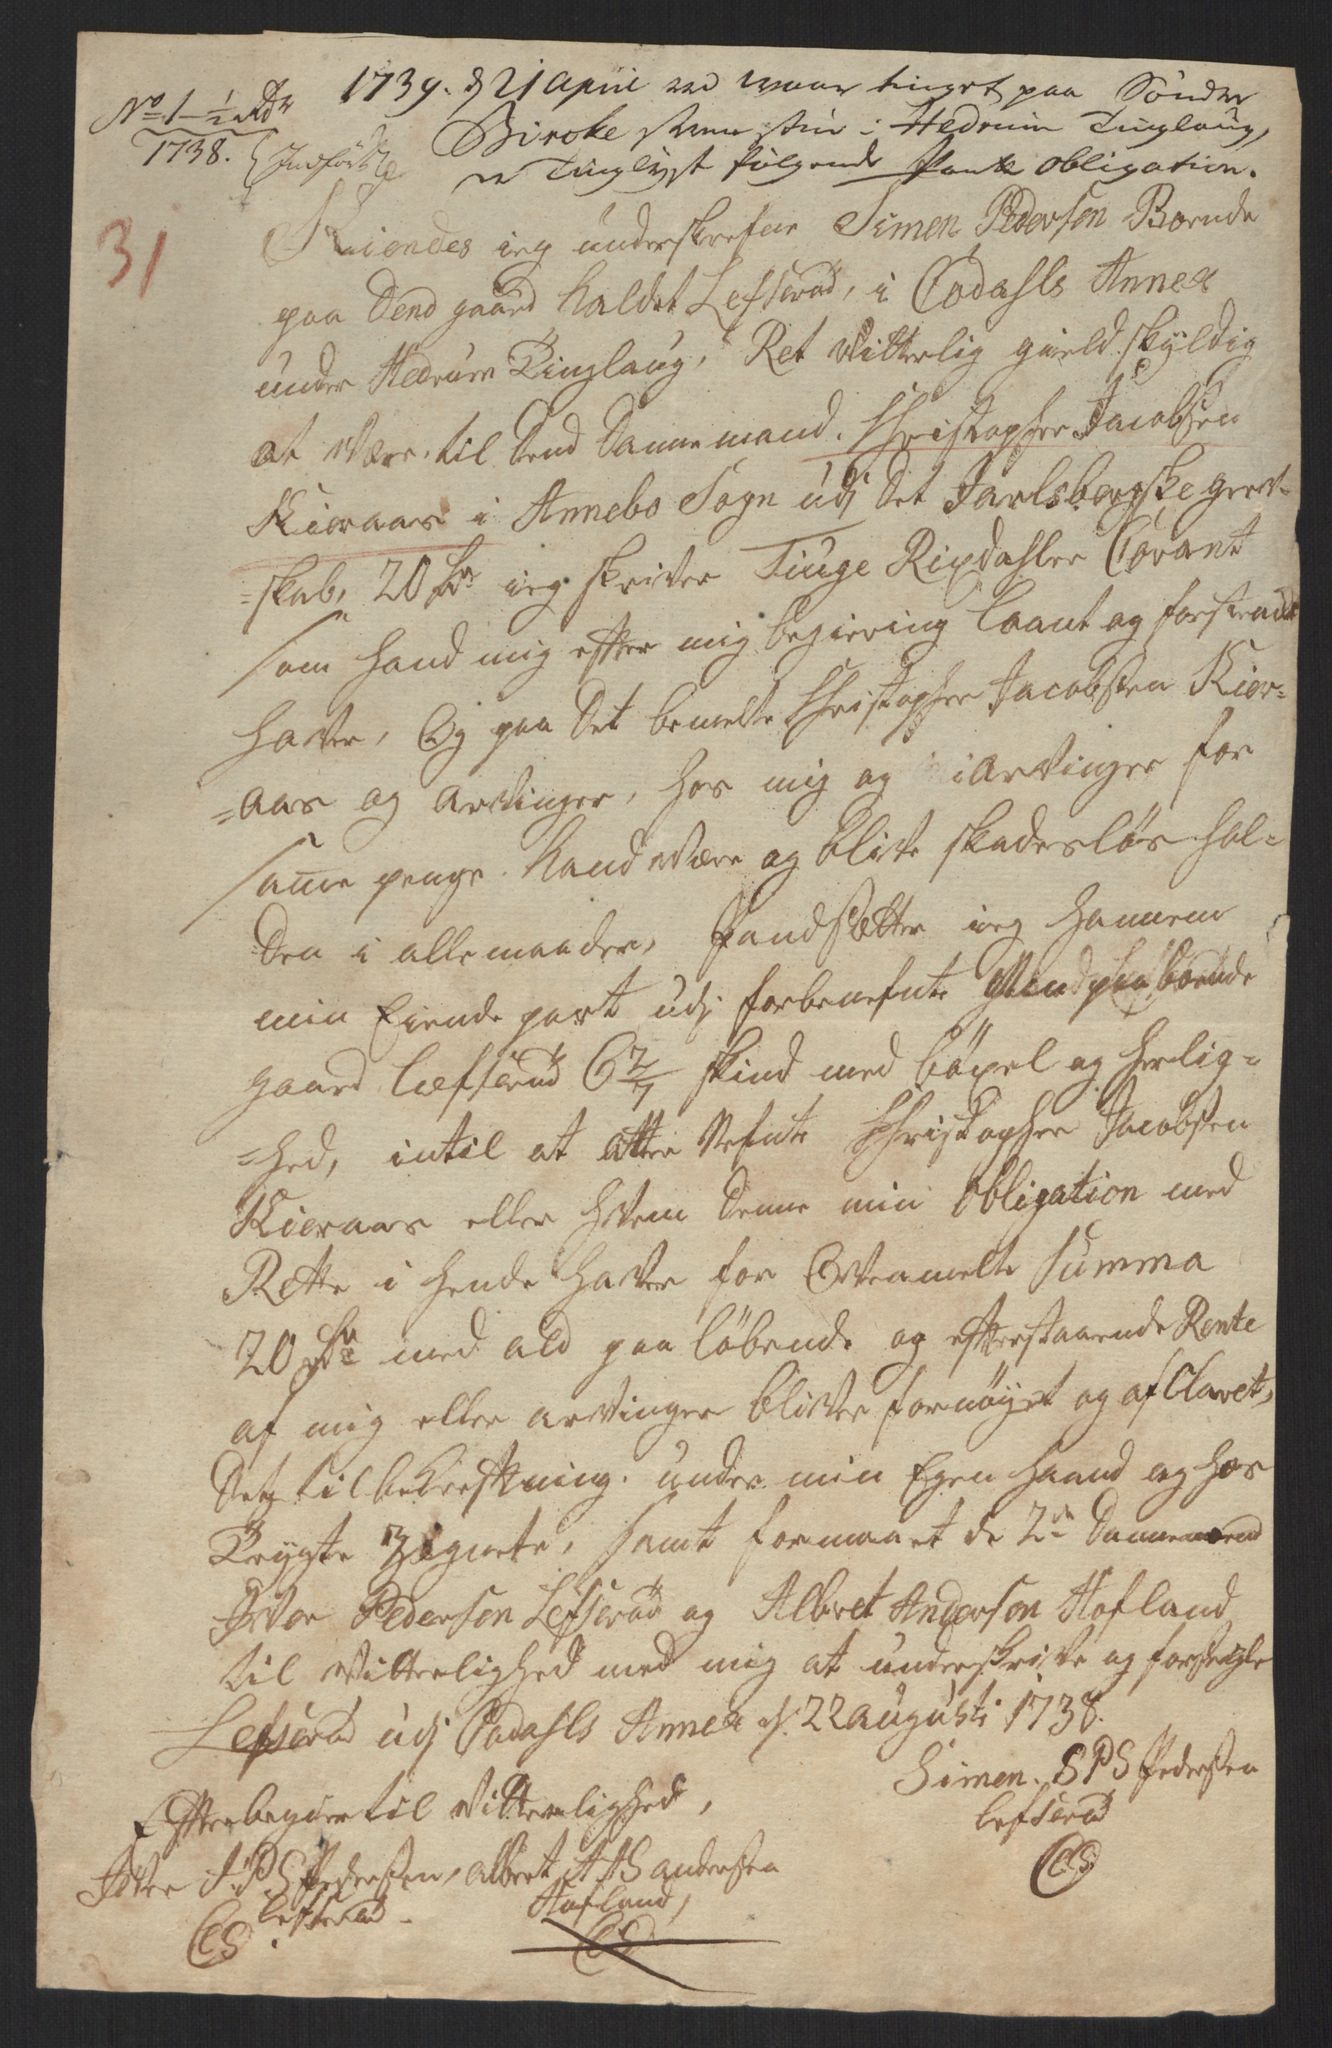 No 1 - ½ Rdr
1738.
Indført
31
1739. d 21 April ved waar tinget paa Sønder
Biroke i Hedrum Tinglaug,
er Tinglyst følgende Pante obligation.
Kiendes ieg underskrefne Simen Pederson Boende
paa dend gaard kaldet Lefserud, i Codahls Annex
under Hedrum Tinglaug, Ret vitterlig gield skyldig
at være til dend Dannemand. Christopher Jacobsen
Kieraas i Annebo Sogn udj det Jarlsbergske grev-
=skab, 20 Rdr ieg skriver Tiuge Rixdahler Corant
som hand mig efter mig begiering laant og forstragt
haver, Og paa det bemelte Christopher Jacobsen Kier=
=aas og arvinger, hos mig og arvinger for
same penge kand være og blive skadesløs hol=
den i alle maader, Pandsætter ieg hannem
min Eiende part udj forbenefnte paaboende
gaard Lefserud 6 2/7 skind med böxel og herlig=
=hed, intil at atter Nefnte Christopher Jacobsen
Kieraas eller hvem denne min obligation med
Rette i hende haver for Ovenmelte Summa
20 Rdr med ald paa løbende og efterstaaende Rente
af mig eller arvinger bliver fornøyet og af Claret,
Dets til bekreftning. under min Egen haand og hos
Trygte Zignete, samt formaaet de 2de Dannemend
Iver Pederson Lefserud og Albret Anderson Hafland
til vitterlighed med mig at underskrive og forseigle
Lefserud udj Codahls Annex d. 22 augusti 1738.
Simen. S P S Pedersen
Lefserud
(LS)
Efter begier til vitterlighed,
Iver I.P.S Pedersen, albret A A S andersen
Lefserud Hafland,
(LS) (LS)